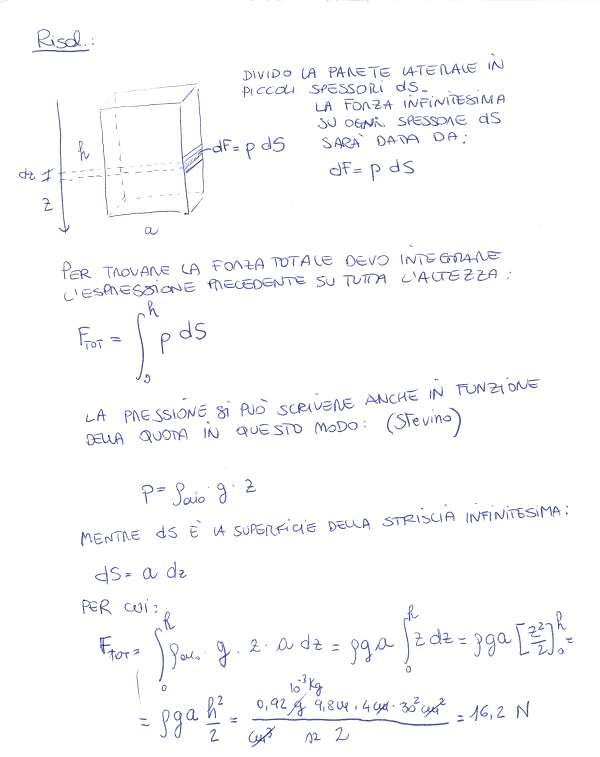 Risol.:
DIVIDO LA PARETE LATERALE IN
PICCOLI SPESSORI dS.
LA FORZA INFINITESIMA
SU OGNI SPESSORE dS
SARÀ DATA DA:
dF = p dS
dF = p dS
h
dz
z
a
PER TROVARE LA FORZA TOTALE DEVO INTEGRARE
L'ESPRESSIONE PRECEDENTE SU TUTTA L'ALTEZZA:
F_TOT = ∫₀ʰ p dS
LA PRESSIONE SI PUÒ SCRIVERE ANCHE IN FUNZIONE
DELLA QUOTA IN QUESTO MODO: (Stevino)
P = ρ_olio · g · z
MENTRE dS È LA SUPERFICIE DELLA STRISCIA INFINITESIMA:
dS = a dz
PER CUI:
F_TOT = ∫₀ʰ ρ_olio · g · z · a dz = ρga ∫₀ʰ z dz = ρga [z²/2]₀ʰ =
10⁻³ kg
= ρga h²/2 = 0,92 g 9,8 m · 4 cm · 30² cm² / cm³ s² 2 = 16,2 N